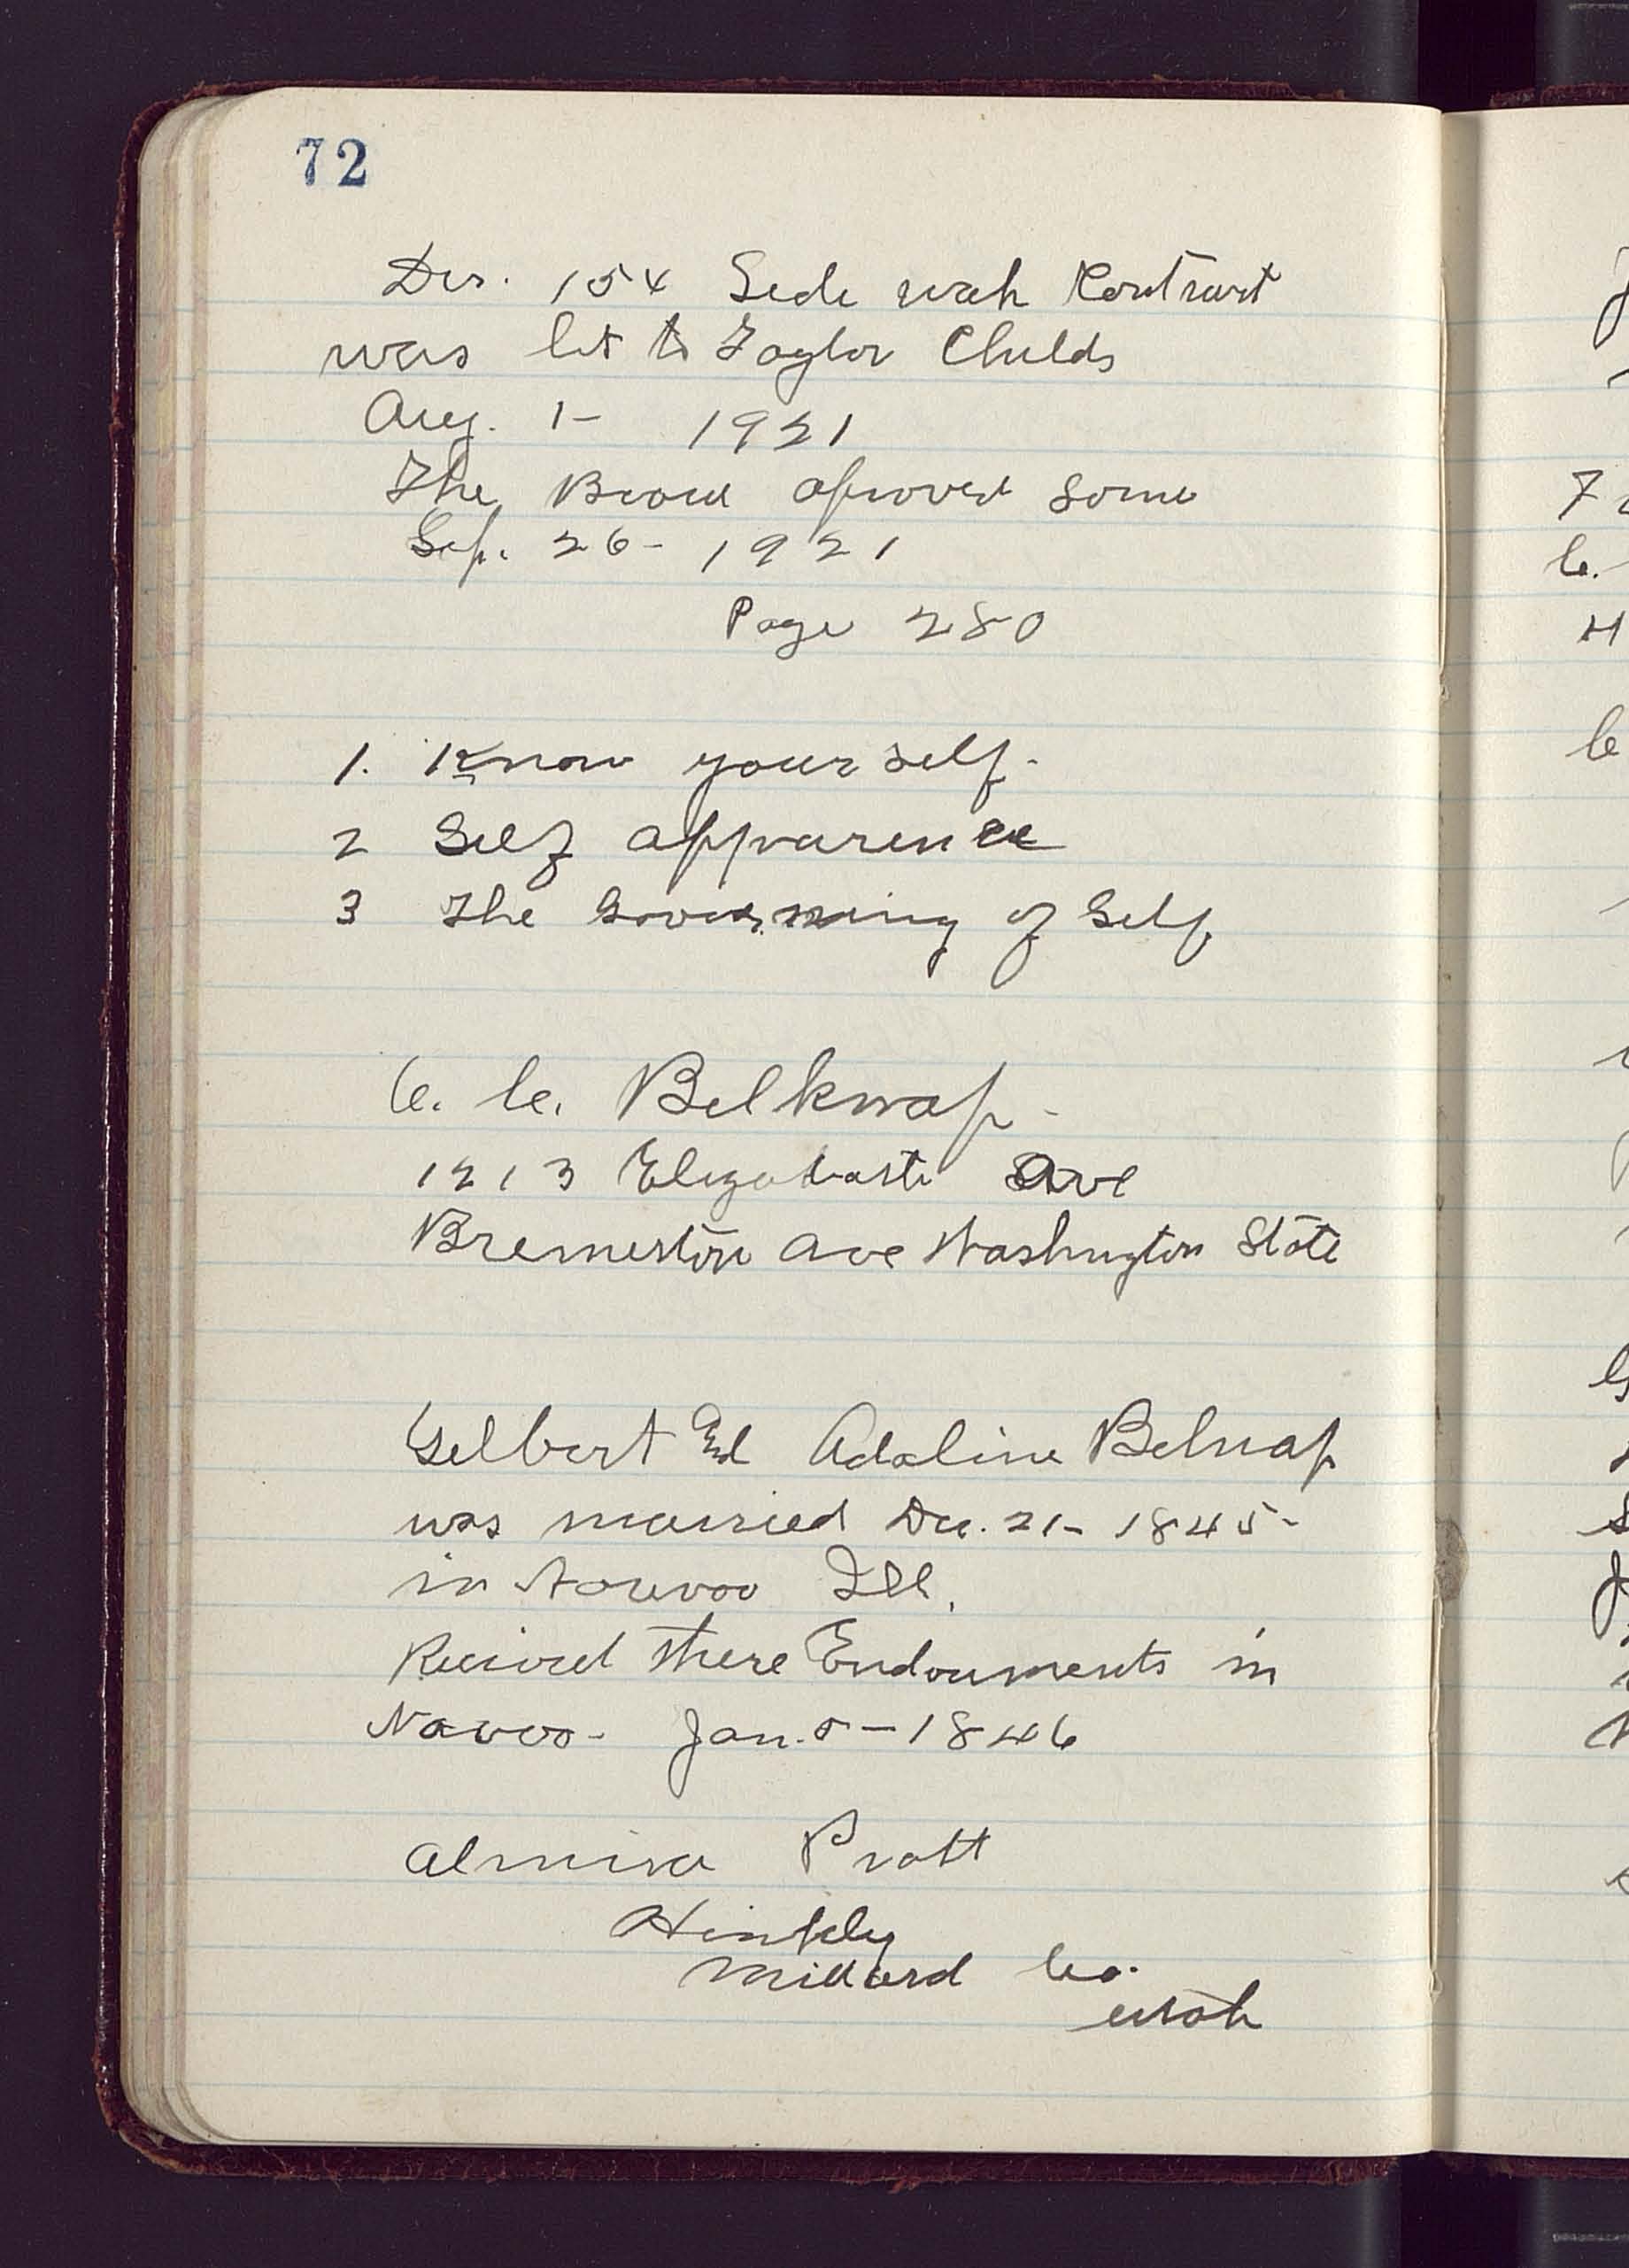 72
Dis. 154 Side walk Contract
was let to Taylor Childs
Aug. 1- 1921
The Board aproved some
Sep. 26- 1921
Page 280
1. Know your self.
2 Self apparence
3 The Governing of Self
C. C. Belknap-
1213 Elizabeth Ave
Bremerton ave Washington State
Gilbert and Adaline Belnap
was married Dec. 21- 1845-
in Nauvoo Ill.
Recived there Endowments in
Navoo- Jan. 5-1846
Almira Pratt
Hinkly
Millard Co.
Utah